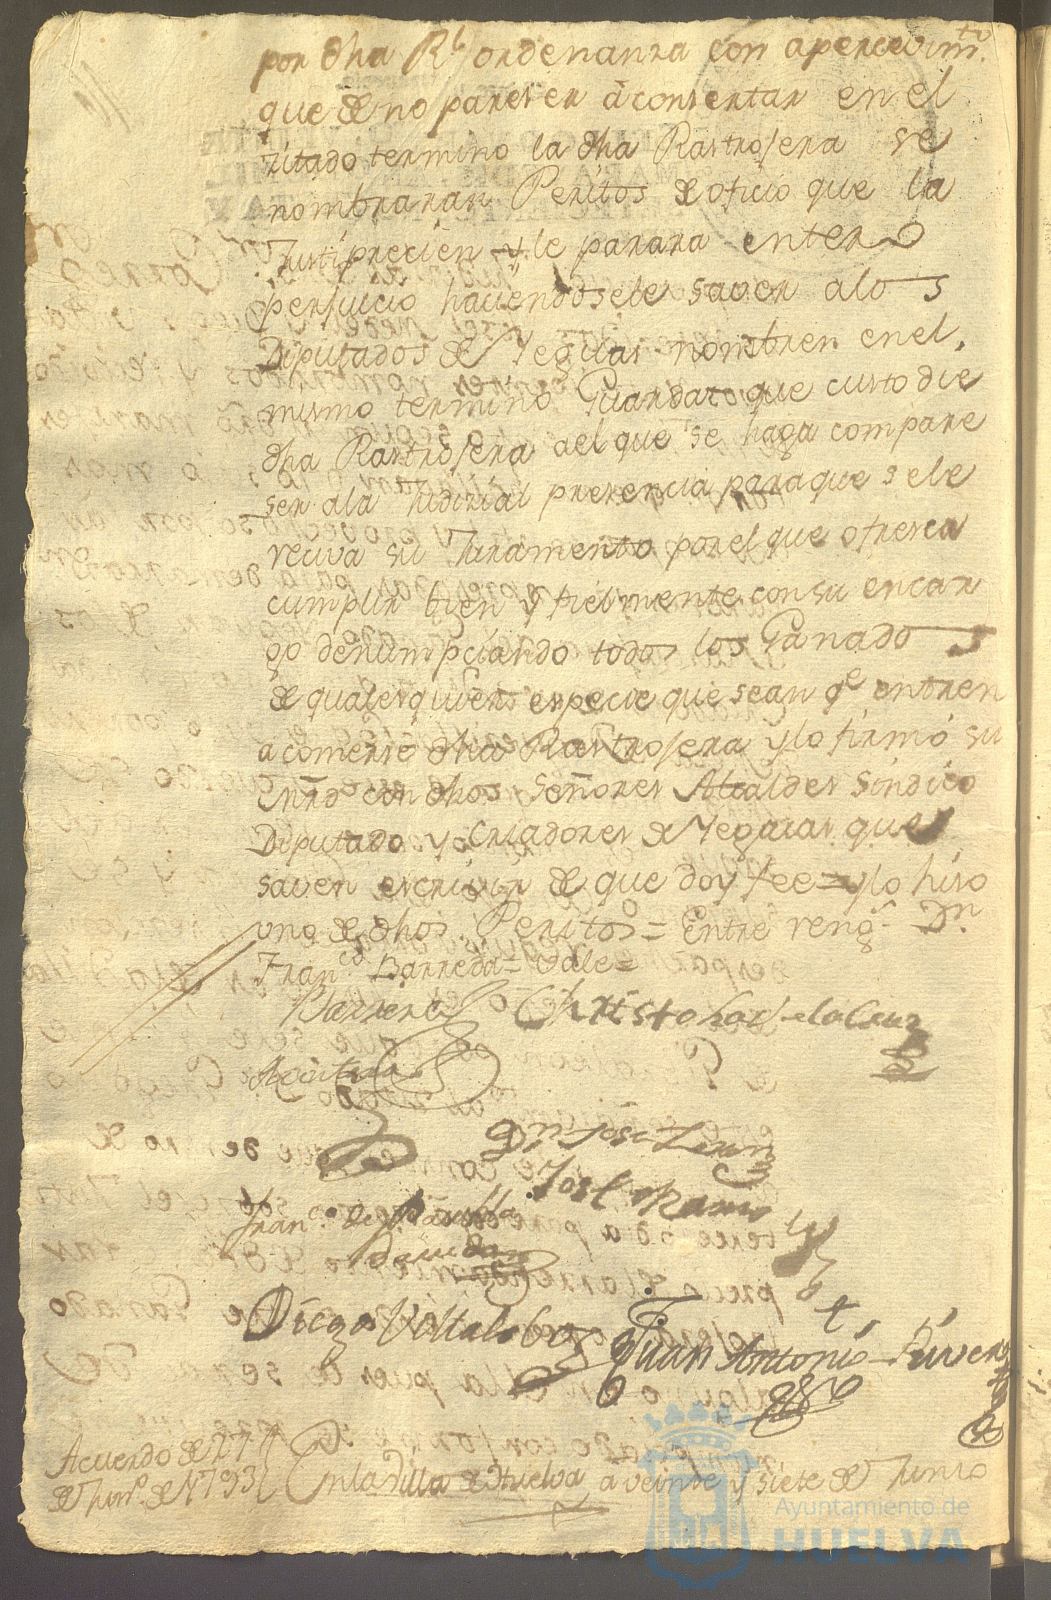 por dha Rl ordenanza con apercevimto
que de no pareser à consertar en el
zitado termino la dha Rastrojera se
nombraran Peritos de oficio que la
Justiprecien y le parara entero
perjuicio haciendosele saver alos
Diputados de Yeguas nombren enel
mismo termino Guarda que custodie
dha Rastrojera ael que se haga compare
ser ala Judizial presencia paraque sele
reciva su Juramento porel que ofresca
cumplir bien y fielmente con su encar
go denumpciando todos los Ganados
de qualesquiera especie que sean qe entren
a comerse dha Rastrojera y lo firmó su
mrd con dhos Señores Alcaldes Sindico
Diputado y Criadores de Yeguas que
saven escrivir de que doy fee = y lo hiso
uno de dhos Peritos = Entre rengs Dn
Franco Barreda = Vale =
Barrera Christobal dela Cruz
Dn José
José Ramis
Franco de Paula
Diego Villalobos Juan Antonio Rivera
Acuerdo de 27
de Juno de 1793 En la Villa de Huelva a veinte y siete de Junio
Ayuntamiento de
HUELVA